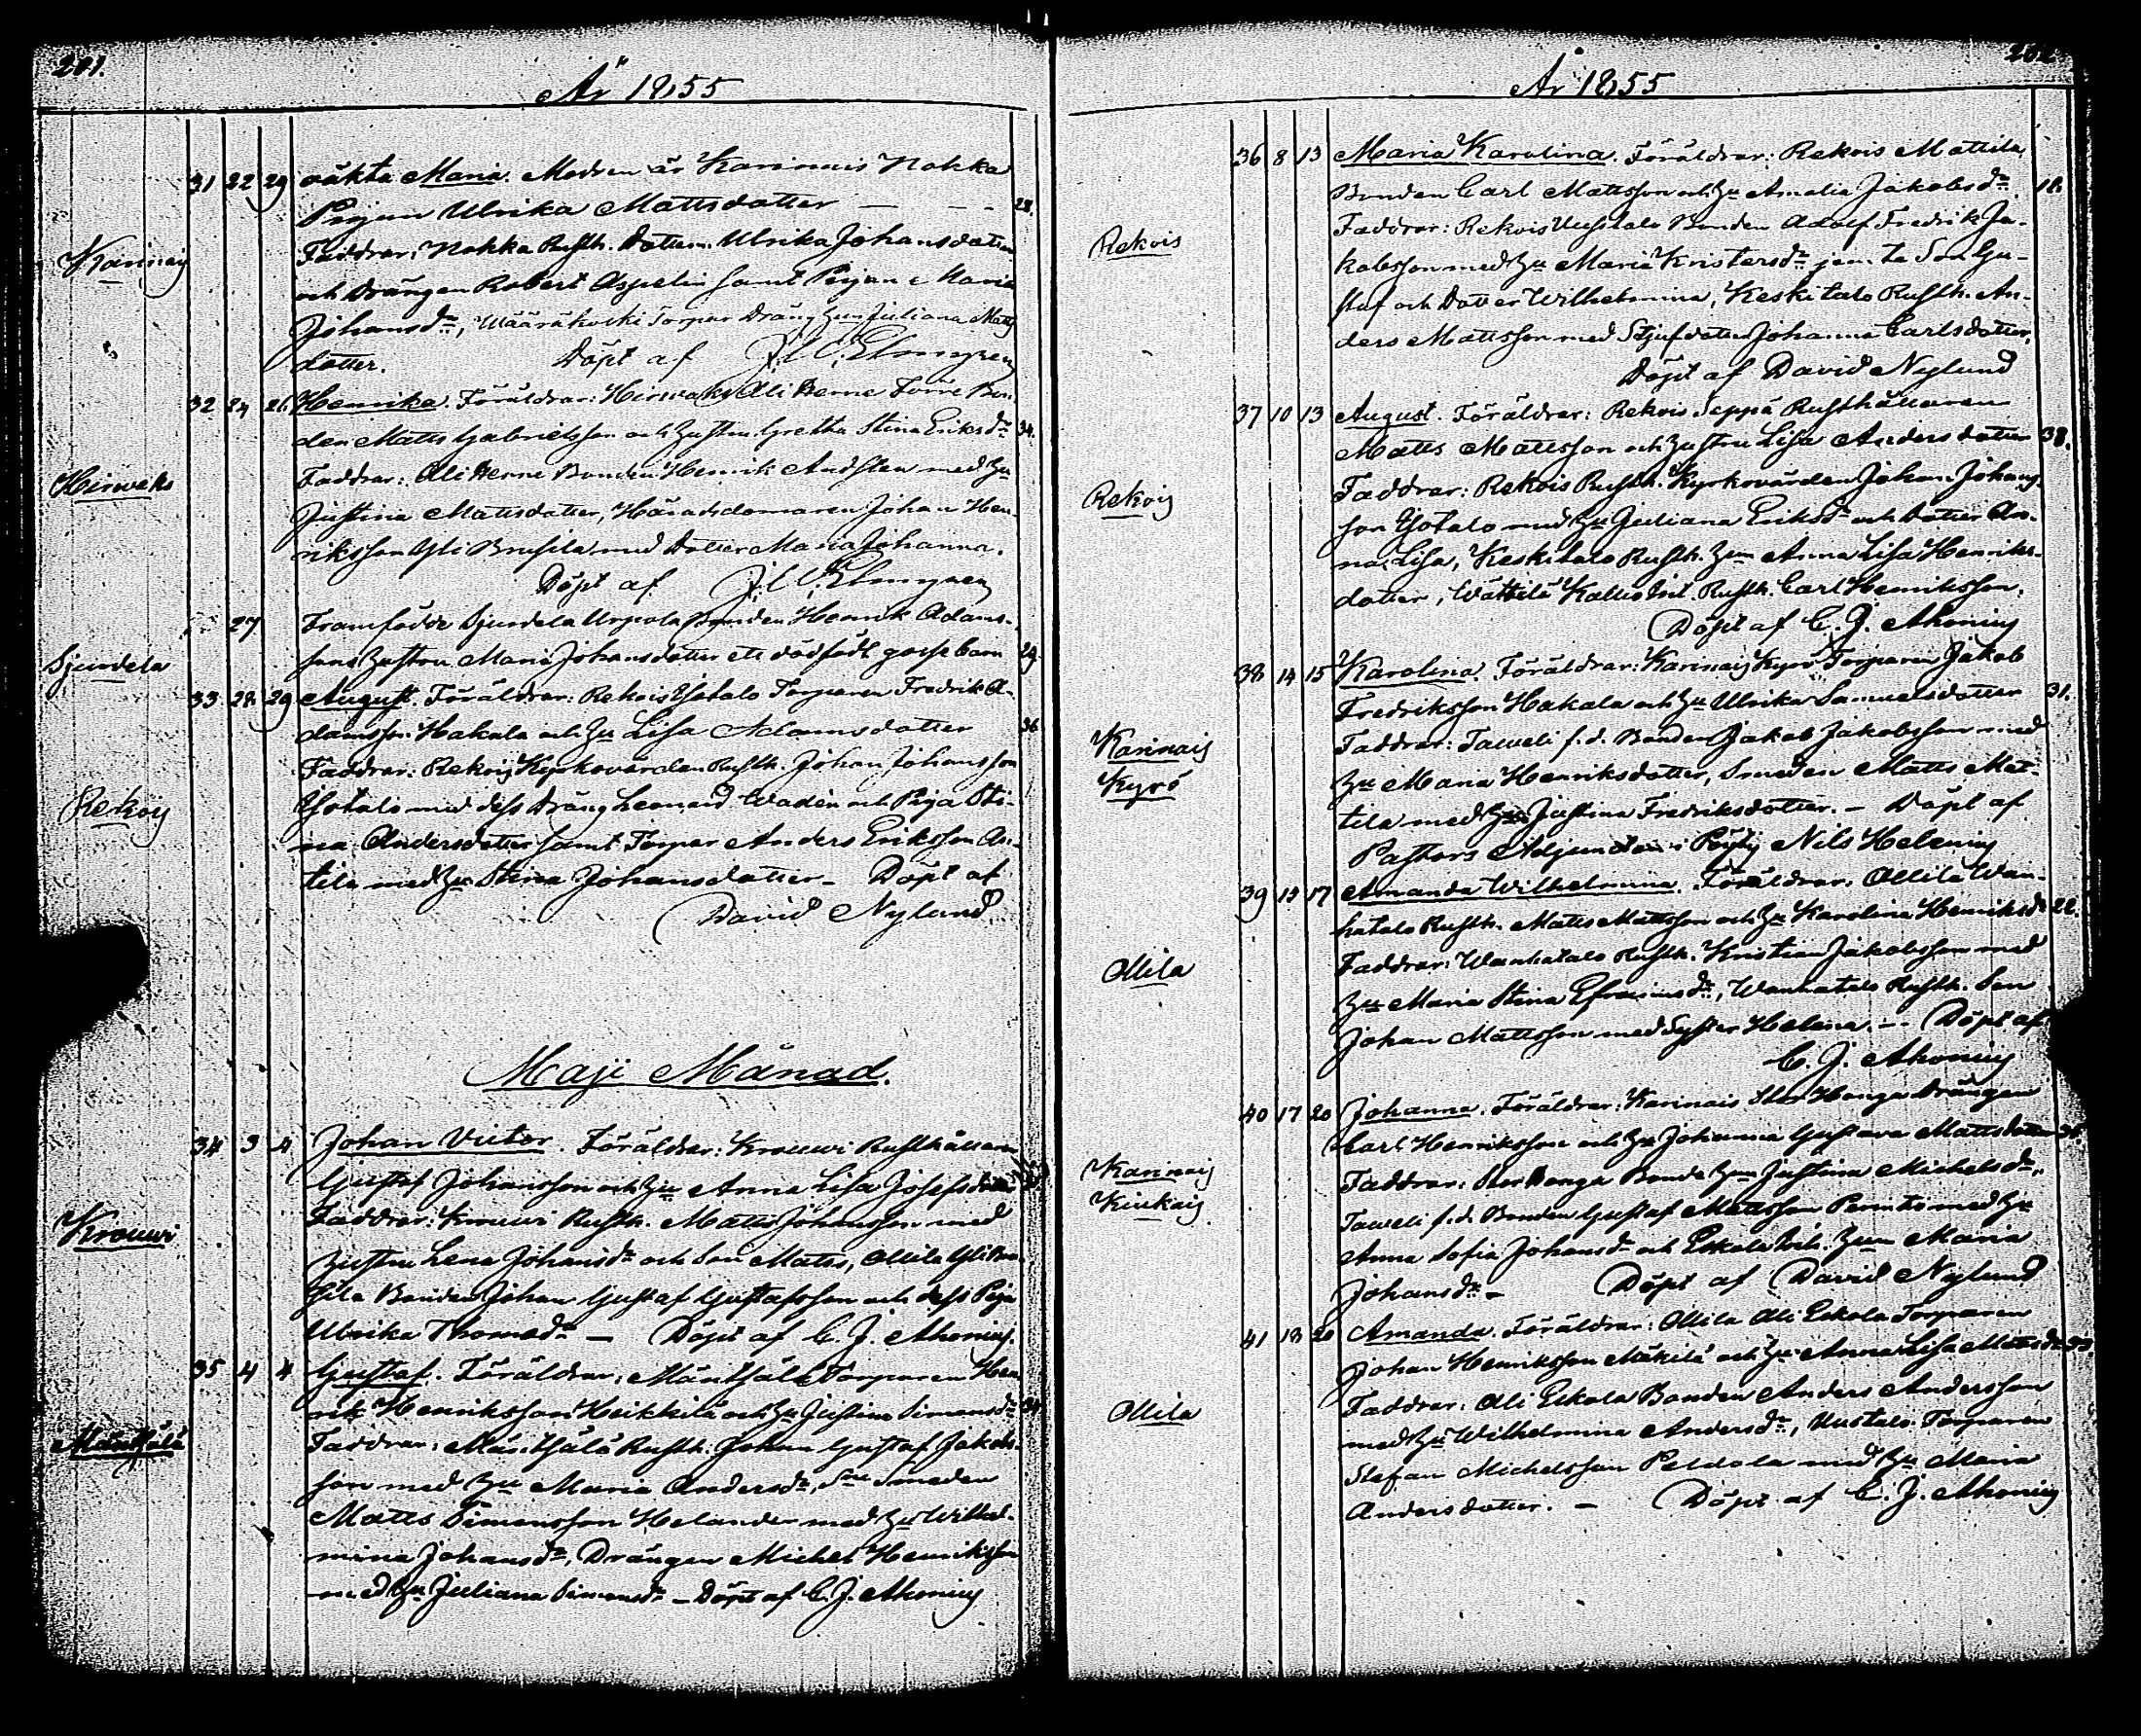 201.
År 1855
Karinais
31 22 29 oäkta Maria. Modren är Karinais Nokka
Pigan Ulrika Mattsdotter — — — 28.
Faddrar: Nokka Rusth. Dottern Ulrika Johansdotter
och Drängen Robert Aspelin samt Pigan Maria
Johansd:r, Wääräkoski Torpar Dräng Hu Juliana Matts
dotter. Döpt af
Hirwaks
32 24 26 Henrika. Föräldrar: Hirwaks Ali Förre Bon
den Matts Gabrielsson och Hustru Gretha Stina Eriksd:r 34.
Faddrar: Ali Bonden Henrik Andsten med Hu
Justina Mattsdotter, Häradsdomaren Johan Hen
riksson Yli Brusila med Dotter Maria Johanna.
Döpt af
Sjundela
27 Framfödde Sjundela Urpola Bonden Henrik Adams-
sons Hustru Maria Johansdotter ett dödfödt gossebarn 29.
33 28 29 August. Föräldrar: Rekois Isotalo Torparen Fredrik A-
damsson Hakala och Hu Lisa Adamsdotter 36
Rekois
Faddrar: Rekois Kyrkovärden Rusth. Johan Johansson
Isotalo med dess Dräng Leonard Wadén och Piga Sti-
na Andersdotter samt Torpar Anders Eriksson An-
tila med Hu Stina Johansdotter — Döpt af
David Nylund
Maji Månad.
34 3 4 Johan Victor. Föräldrar: Krouwi Rusthållaren
Gustaf Johansson och Hu Anna Lisa Josefsdotter
Krouwi
Faddrar: Krouwi Rusth. Matts Johansson med
Hustru Lena Johansd:r och Son Matts, Ollila
Bonden Johan Gustaf Gustafsson och dess Piga
Ulrika Thomasd:r — Döpt af C. J. Ahonius.
35 4 4 Gustaf. Föräldrar: Mäntsälä Torparen Hen
rik Henriksson Heikkilä och Hu Justina Simonsd:r 34.
Mäntsälä
Faddrar: Mäntsälä Rusth. Johan Gustaf Jakobs-
son med Hu Maria Andersd:r, Smeden
Matts Simonsson Helander med Hu Wilhel-
mina Johansd:r, Drängen Michel Henriksson
med Hu Juliana Simonsd:r — Döpt af C. J. Ahonius
202
År 1855
36 8 13 Maria Karolina. Föräldrar: Rekois Mattila
Bonden Carl Mattsson och Hu Amalia Jakobsd:r 18.
Rekois
Faddrar: Rekois Uusitalo Bonden Adolf Fredrik Ja-
kobsson med Hu Maria Kristersd:r jemte Son Gu-
staf och Dotter Wilhelmina, Keskitalo Rusth. An-
ders Mattsson med Stjufdotter Johanna Carlsdotter.
Döpt af David Nylund
37 10 13 August. Föräldrar: Rekois Seppä Rusthållaren
Matts Mattsson och Hustru Lisa Andersdotter 38.
Rekois
Faddrar: Rekois Rusth. Kyrkovärden Johan Johans-
son Isotalo med Hu Juliana Eriksd:r och Dotter An-
na Lisa, Keskitalo Rusth. Hu Anna Lisa Henriks-
dotter, Wättilä Kallio Rusth. Carl Henriksson.
Döpt af C. J. Ahonius
38 14 15 Karolina. Föräldrar: Karinais Kyrö Torparen Jakob
Fredriksson Hakala och Hu Ulrika Samuelsdotter 31.
Karinais
Kyrö
Faddrar: Taweli f.d. Bonden Jakob Jakobsson med
Hu Maria Henriksdotter, Smeden Matts Mat-
tila med Hu Justina Fredriksdotter. — Döpt af
Pastors Adjuncten i Pöytis Nils Helenius
39 15 17 Amanda Wilhelmina. Föräldrar: Ollila Wan-
hatalo Rusth. Matts Mattsson och Hu Karolina Henriksd:r 22.
Ollila
Faddrar: Wanhatalo Rusth. Kristian Jakobsson med
Hu Maria Stina Efraimsd:r, Wanhatalo Rusth. Son
Johan Mattsson med Syster Helena. — Döpt af
C. J. Ahonius
40 17 20 Johanna. Föräldrar: Karinais Stor Honga Drängen
Carl Henriksson och Hu Johanna Gustava Mattsdotter
Karinais
Kiukais
Faddrar: Stor Honga Bonde Hu Justina Michelsd:r,
Taweli f.d. Bonden Gustaf Mattsson med Hu
Anna Sofia Johansd:r och Eskola Hu Maria
Johansd:r — Döpt af David Nylund
41 18 20 Amanda. Föräldrar: Ollila Ali Eskola Torparen
Johan Henriksson Mäkilä och Hu Anna Lisa Mattsd:r
Ollila
Faddrar: Ali Eskola Bonden Anders Andersson
med Hu Wilhelmina Andersd:r, Uustalo Torparen
Stefan Michelsson Peldola med Hu Maria
Andersdotter. — Döpt af C. J. Ahonius